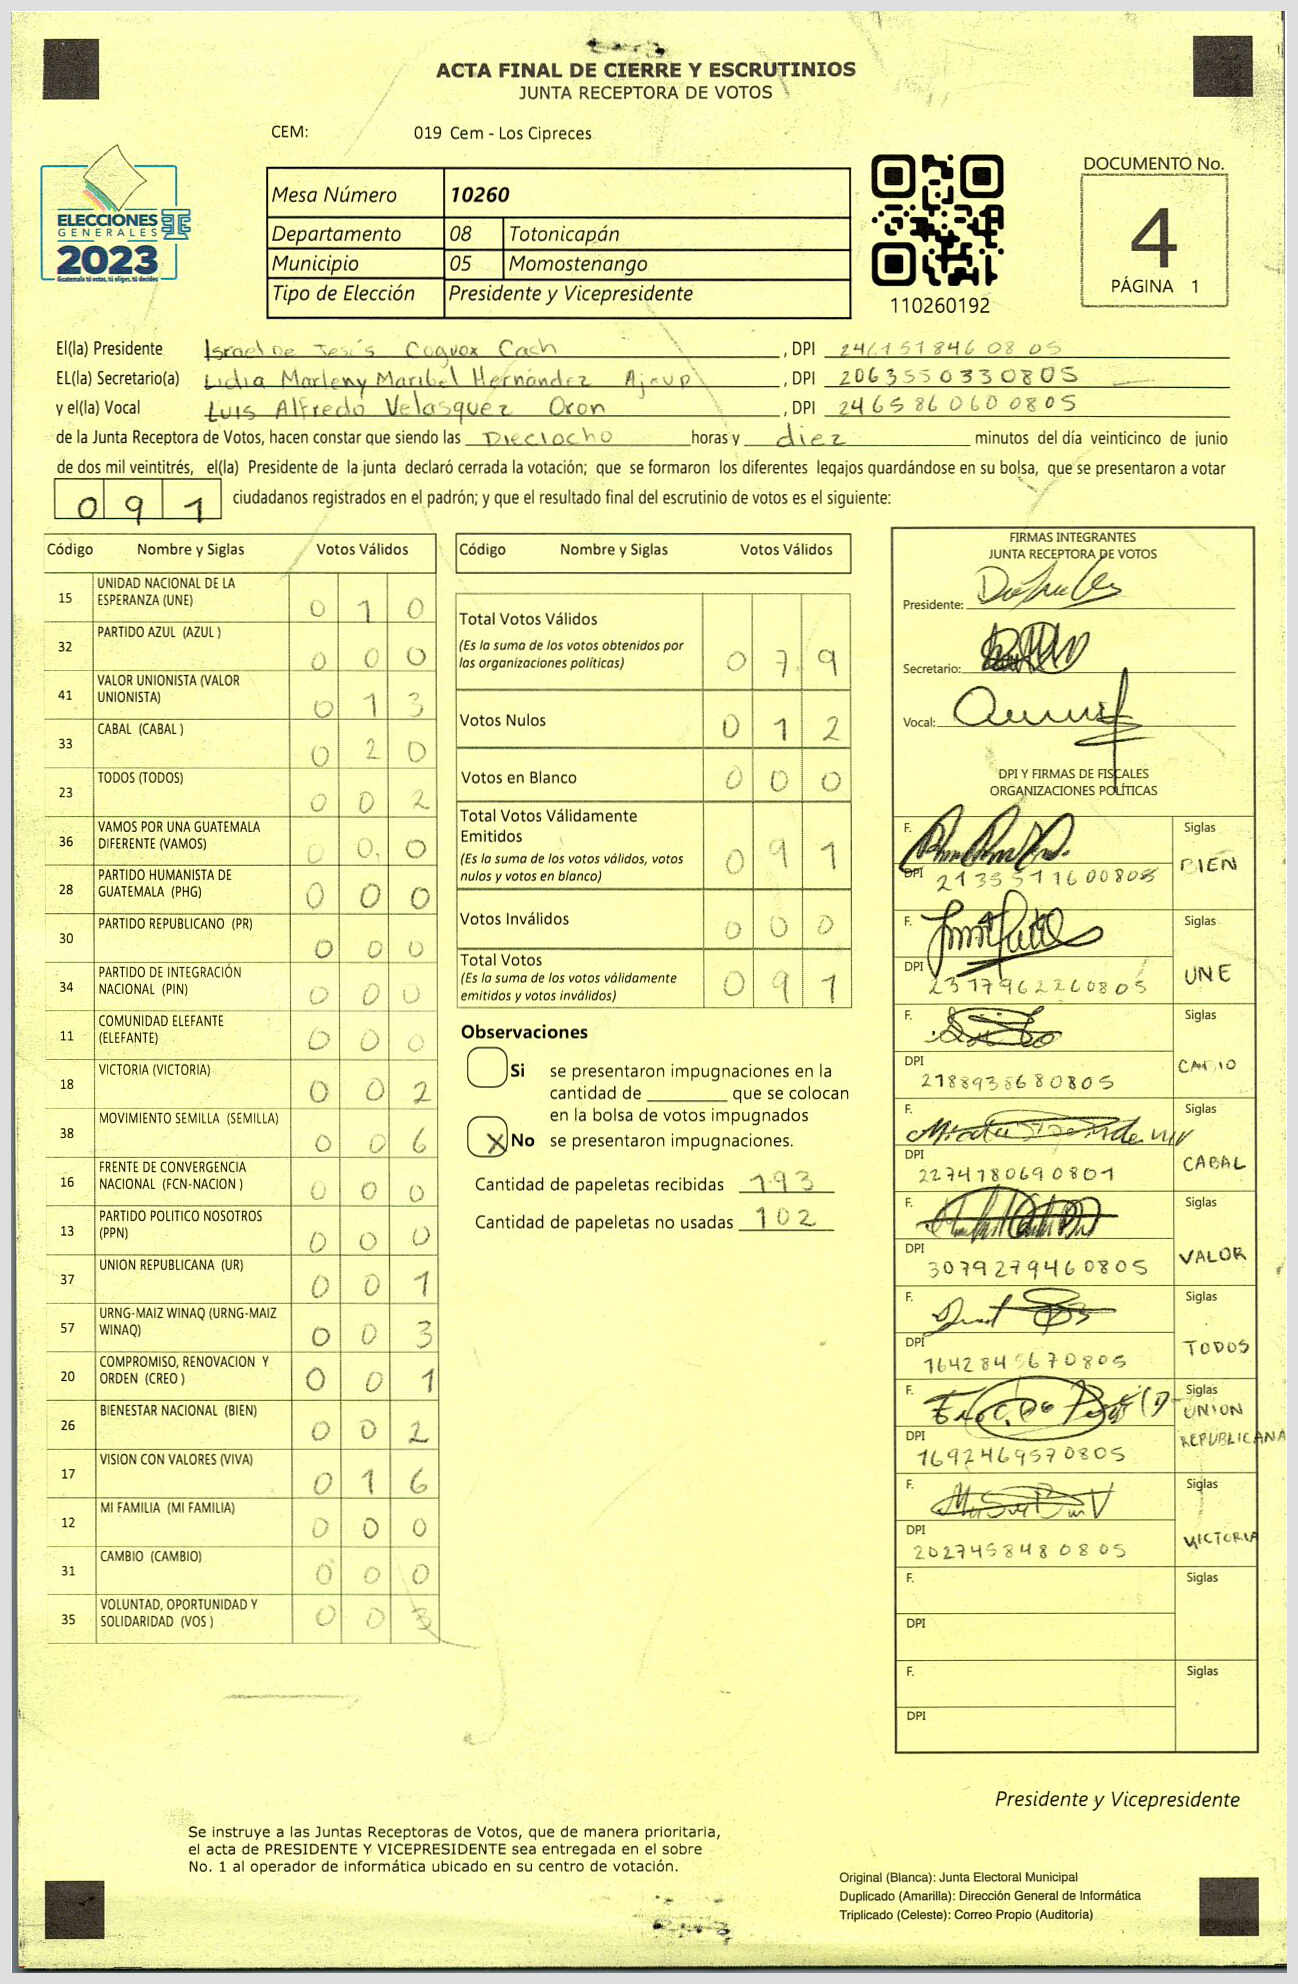 ACTA FINAL DE CIERRE Y ESCRUTINIOS
JUNTA RECEPTORA DE VOTOS
CEM: 019 Cem - Los Cipreces
ELECCIONES
GENERALES
2023
Guatemala tú votas, tú eliges, tú decides
Mesa Número 10260
Departamento 08 Totonicapán
Municipio 05 Momostenango
Tipo de Elección Presidente y Vicepresidente
110260192
DOCUMENTO No.
4
PÁGINA 1
El(la) Presidente Israel De Jesús Coguox Cach , DPI 246151846 08 05
EL(la) Secretario(a) Lidia Marleny Maribel Hernández Ajxup , DPI 2063550330805
y el(la) Vocal Luis Alfredo Velasquez Oron , DPI 2465860600805
de la Junta Receptora de Votos, hacen constar que siendo las Dieciocho horas y diez minutos del día veinticinco de junio
de dos mil veintitrés, el(la) Presidente de la junta declaró cerrada la votación; que se formaron los diferentes legajos guardándose en su bolsa, que se presentaron a votar
091 ciudadanos registrados en el padrón; y que el resultado final del escrutinio de votos es el siguiente:
Código Nombre y Siglas Votos Válidos
15 UNIDAD NACIONAL DE LA ESPERANZA (UNE) 0 1 0
32 PARTIDO AZUL (AZUL ) 0 0 0
41 VALOR UNIONISTA (VALOR UNIONISTA) 0 1 3
33 CABAL (CABAL ) 0 2 0
23 TODOS (TODOS) 0 0 2
36 VAMOS POR UNA GUATEMALA DIFERENTE (VAMOS) 0 0 0
28 PARTIDO HUMANISTA DE GUATEMALA (PHG) 0 0 0
30 PARTIDO REPUBLICANO (PR) 0 0 0
34 PARTIDO DE INTEGRACIÓN NACIONAL (PIN) 0 0 0
11 COMUNIDAD ELEFANTE (ELEFANTE) 0 0 0
18 VICTORIA (VICTORIA) 0 0 2
38 MOVIMIENTO SEMILLA (SEMILLA) 0 0 6
16 FRENTE DE CONVERGENCIA NACIONAL (FCN-NACION ) 0 0 0
13 PARTIDO POLITICO NOSOTROS (PPN) 0 0 0
37 UNION REPUBLICANA (UR) 0 0 1
57 URNG-MAIZ WINAQ (URNG-MAIZ WINAQ) 0 0 3
20 COMPROMISO, RENOVACION Y ORDEN (CREO ) 0 0 1
26 BIENESTAR NACIONAL (BIEN) 0 0 2
17 VISION CON VALORES (VIVA) 0 1 6
12 MI FAMILIA (MI FAMILIA) 0 0 0
31 CAMBIO (CAMBIO) 0 0 0
35 VOLUNTAD, OPORTUNIDAD Y SOLIDARIDAD (VOS ) 0 0 3
Código Nombre y Siglas Votos Válidos
Total Votos Válidos 0 7 9
(Es la suma de los votos obtenidos por
las organizaciones políticas)
Votos Nulos 0 1 2
Votos en Blanco 0 0 0
Total Votos Válidamente
Emitidos 0 9 1
(Es la suma de los votos válidos, votos
nulos y votos en blanco)
Votos Inválidos 0 0 0
Total Votos 0 9 1
(Es la suma de los votos válidamente
emitidos y votos inválidos)
Observaciones
Si se presentaron impugnaciones en la
cantidad de ________ que se colocan
en la bolsa de votos impugnados
X No se presentaron impugnaciones.
Cantidad de papeletas recibidas 193
Cantidad de papeletas no usadas 102
FIRMAS INTEGRANTES
JUNTA RECEPTORA DE VOTOS
Presidente:
Secretario:
Vocal:
DPI Y FIRMAS DE FISCALES
ORGANIZACIONES POLÍTICAS
F. Siglas
DPI 2135511600805 BIEN
F. Siglas
DPI 2317962260805 UNE
F. Siglas
DPI 2188938680805
F. Siglas
DPI 2274780690801 CABAL
F. Siglas
DPI 3079279460805 VALOR
F. Siglas
DPI 1642845670805 TODOS
F. Siglas
DPI 1692469570805 UNION REPUBLICANA
F. Siglas
DPI 2027458480805 VICTORIA
F. Siglas
DPI
F. Siglas
DPI
Presidente y Vicepresidente
Se instruye a las Juntas Receptoras de Votos, que de manera prioritaria,
el acta de PRESIDENTE Y VICEPRESIDENTE sea entregada en el sobre
No. 1 al operador de informática ubicado en su centro de votación.
Original (Blanca): Junta Electoral Municipal
Duplicado (Amarilla): Dirección General de Informática
Triplicado (Celeste): Correo Propio (Auditoría)